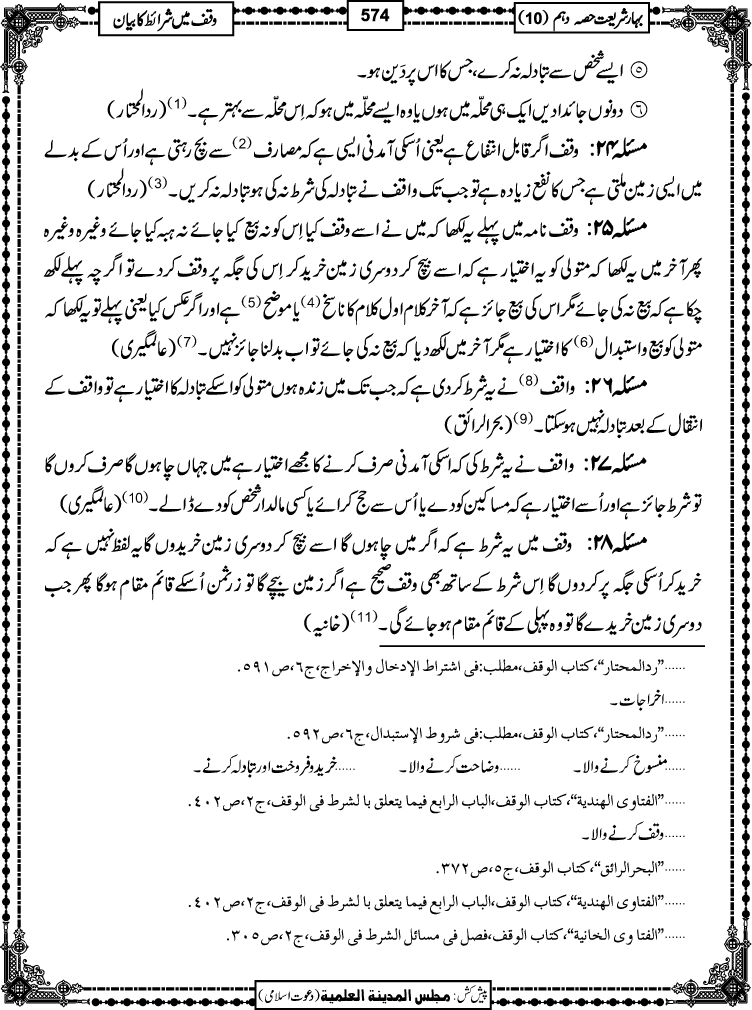 بہارِ شریعت حصہ دہم (10)
574
وقف میں شرائط کا بیان
⑤ ایسے شخص سے تبادلہ نہ کرے، جس کا اس پر دَین ہو۔
⑥ دونوں جائدادیں ایک ہی محلہ میں ہوں یا وہ ایسے محلّہ میں ہو کہ اِس محلّہ سے بہتر ہے۔(1) (ردالمحتار)
مسئلہ ۲۴: وقف اگر قابل انتفاع ہے یعنی اُسکی آمدنی ایسی ہے کہ مصارف(2) سے بچ رہتی ہے اور اُس کے بدلے
میں ایسی زمین ملتی ہے جس کا نفع زیادہ ہے تو جب تک واقف نے تبادلہ کی شرط نہ کی ہو تبادلہ نہ کریں۔(3) (ردالمحتار)
مسئلہ ۲۵: وقف نامہ میں پہلے یہ لکھا کہ میں نے اسے وقف کیا اِس کو نہ بیع کیا جائے نہ ہبہ کیا جائے وغیرہ وغیرہ
پھر آخر میں یہ لکھا کہ متولی کو یہ اختیار ہے کہ اسے بیچ کر دوسری زمین خرید کر اِس کی جگہ پر وقف کردے تو اگرچہ پہلے لکھ
چکا ہے کہ بیع نہ کی جائے مگر اس کی بیع جائز ہے کہ آخر کلام اول کلام کا ناسخ(4) یا موضح(5) ہے اور اگر عکس کیا یعنی پہلے تو یہ لکھا کہ
متولی کو بیع و استبدال(6) کا اختیار ہے مگر آخر میں لکھ دیا کہ بیع نہ کی جائے تو اب بدلنا جائز نہیں۔(7) (عالمگیری)
مسئلہ ۲۶: واقف(8) نے یہ شرط کردی ہے کہ جب تک میں زندہ ہوں متولی کو اسکے تبادلہ کا اختیار ہے تو واقف کے
انتقال کے بعد تبادلہ نہیں ہوسکتا۔(9) (بحرالرائق)
مسئلہ ۲۷: واقف نے یہ شرط کی کہ اسکی آمدنی صرف کرنے کا مجھے اختیار ہے میں جہاں چاہوں گا صرف کروں گا
تو شرط جائز ہے اور اُسے اختیار ہے کہ مساکین کو دے یا اُس سے حج کرائے یا کسی مالدار شخص کو دے ڈالے۔(10) (عالمگیری)
مسئلہ ۲۸: وقف میں یہ شرط ہے کہ اگر میں چاہوں گا اسے بیچ کر دوسری زمین خریدوں گا یہ لفظ نہیں ہے کہ
خرید کر اُسکی جگہ پر کردوں گا اِس شرط کے ساتھ بھی وقف صحیح ہے اگر زمین بیچے گا تو زرِثمن اُسکے قائم مقام ہوگا پھر جب
دوسری زمین خریدے گا تو وہ پہلی کے قائم مقام ہو جائے گی۔(11) (خانیہ)
......”ردالمحتار“، کتاب الوقف، مطلب: فی اشتراط الإدخال والإخراج، ج٦، ص٥٩١.
......اخراجات۔
......”ردالمحتار“، کتاب الوقف، مطلب: فی شروط الإستبدال، ج٦، ص٥٩٢.
......منسوخ کرنے والا۔ ......وضاحت کرنے والا۔ ......خرید و فروخت اور تبادلہ کرنے۔
......”الفتاوی الهندیة“، کتاب الوقف، الباب الرابع فیما یتعلق با لشرط فی الوقف، ج٢، ص٤٠٢.
......وقف کرنے والا۔
......”البحرالرائق“، کتاب الوقف، ج٥، ص٣٧٢.
......”الفتاوی الهندیة“، کتاب الوقف، الباب الرابع فیما یتعلق با لشرط فی الوقف، ج٢، ص٤٠٢.
......”الفتا وی الخانیة“، کتاب الوقف، فصل فی مسائل الشرط فی الوقف، ج٢، ص٣٠٥.
پیش کش: مجلس المدینة العلمیة (دعوت اسلامی)